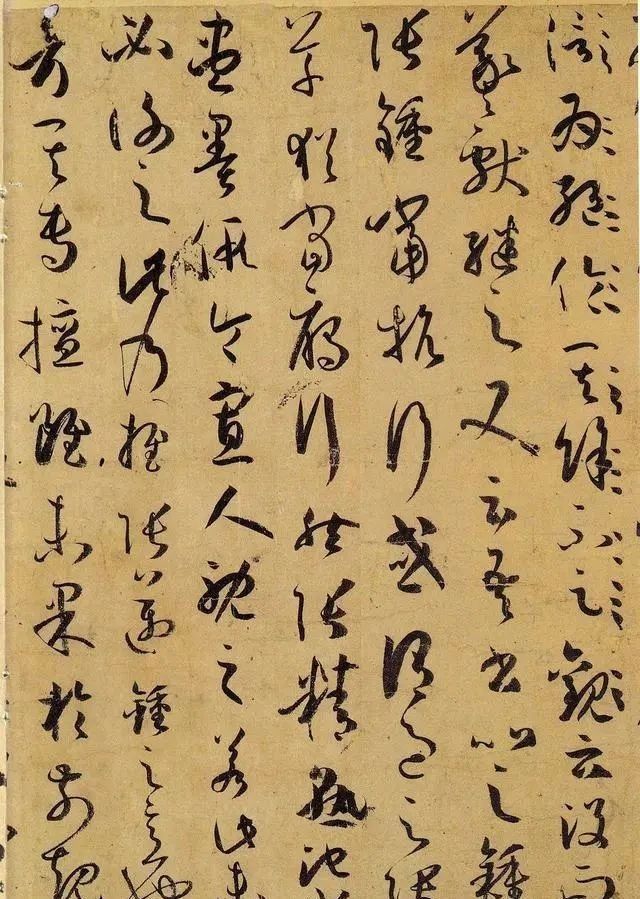 信為絕倫其餘不足觀云沒而
羲獻繼之又云吾書比之鍾
張鍾當抗行或謂過之張
草猶當雁行然張精熟池水
盡墨假令寡人耽之若此未
必謝之此乃推張邁鍾之意也
考其專擅雖未果於前規